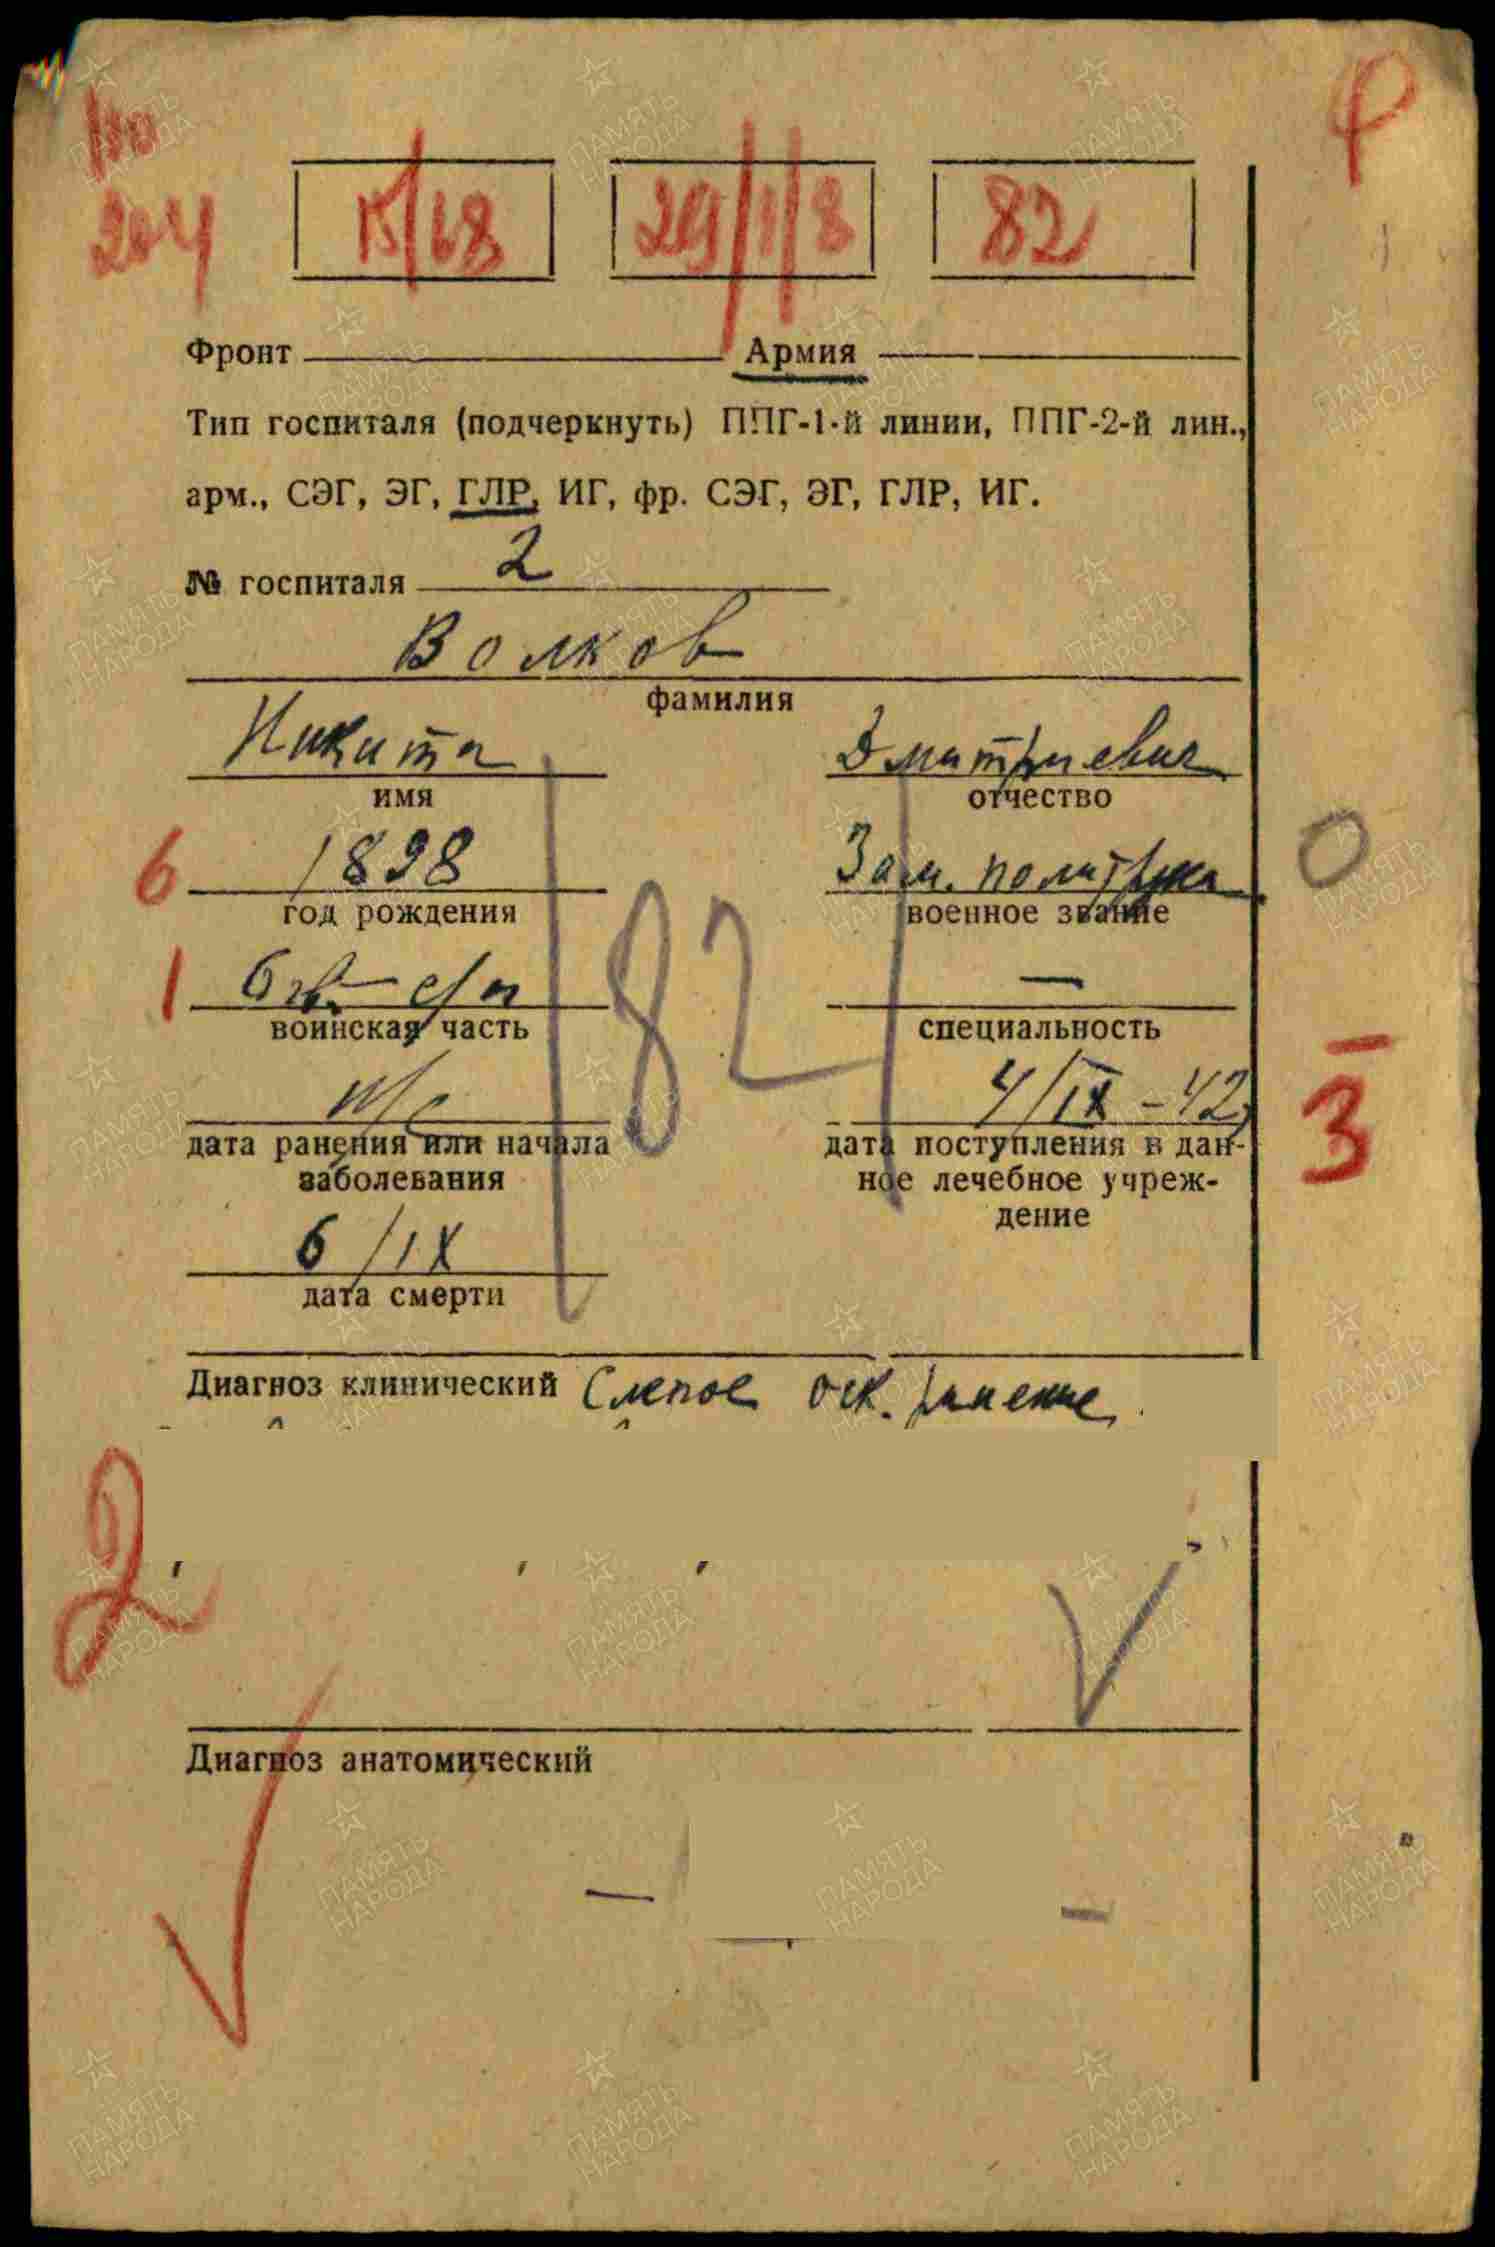 204 15/68 29/1/8 82
Фронт Армия
Тип госпиталя (подчеркнуть) ППГ-1-й линии, ППГ-2-й лин.,
арм., СЭГ, ЭГ, ГЛР, ИГ, фр. СЭГ, ЭГ, ГЛР, ИГ.
№ госпиталя 2
Волков
фамилия
Никита Дмитриевич
имя отчество
6 1898 Зам. политрука 0
год рождения военное звание
1 6 гв. с/п —
воинская часть специальность
82
н/с 4/IX-42
дата ранения или начала дата поступления в дан-
заболевания ное лечебное учреж-
дение
3
6/IX
дата смерти
Диагноз клинический Слепое оск. ранение
2
Диагноз анатомический
ПАМЯТЬ НАРОДА